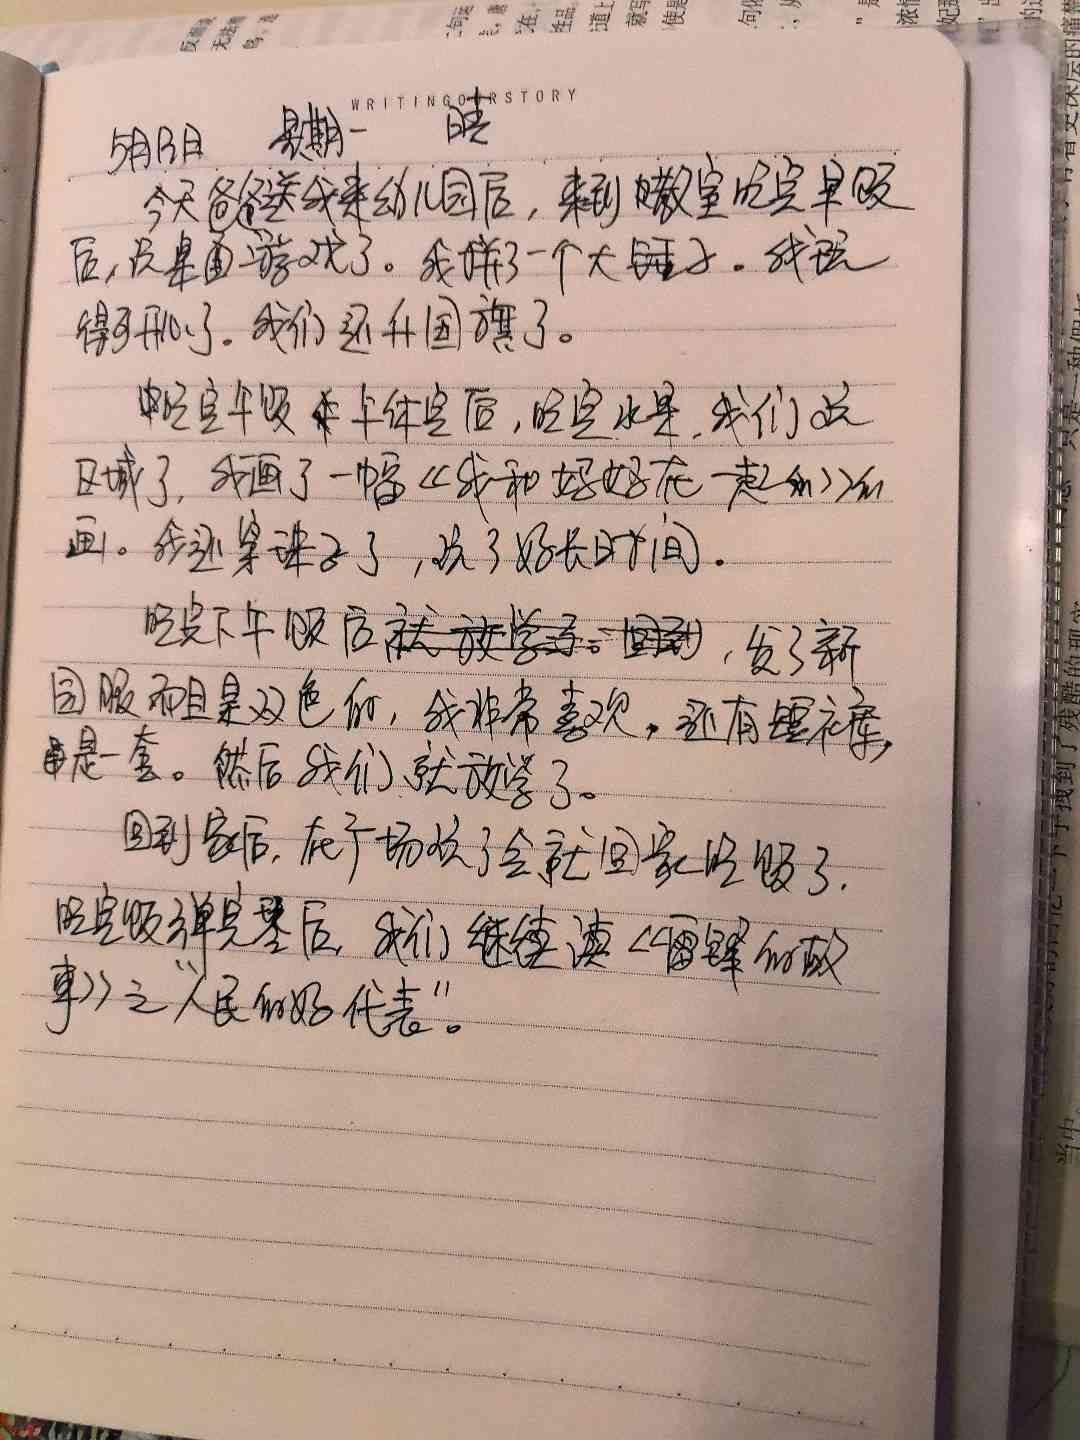 WRITINGOURSTORY
5月13日 星期一 晴
今天爸爸送我来幼儿园后，来到教室吃完早饭
后，玩桌面游戏了。我拼了一个大锤子。我玩
得可开心了。我们还升国旗了。
吃完午饭午休完后，吃完水果，我们玩
区域了，我画了一幅《我和妈妈在一起的》的
画。我还穿珠子了，玩了好长时间。
吃完下午饭后就放学了。回到，发了新
园服而且是双色的，我非常喜欢。还有短裤，
是一套。然后我们就放学了。
回到家后，在广场玩了会就回家吃饭了.
吃完饭弹完琴后，我们继续读《雷锋的故
事》之“人民的好代表”。